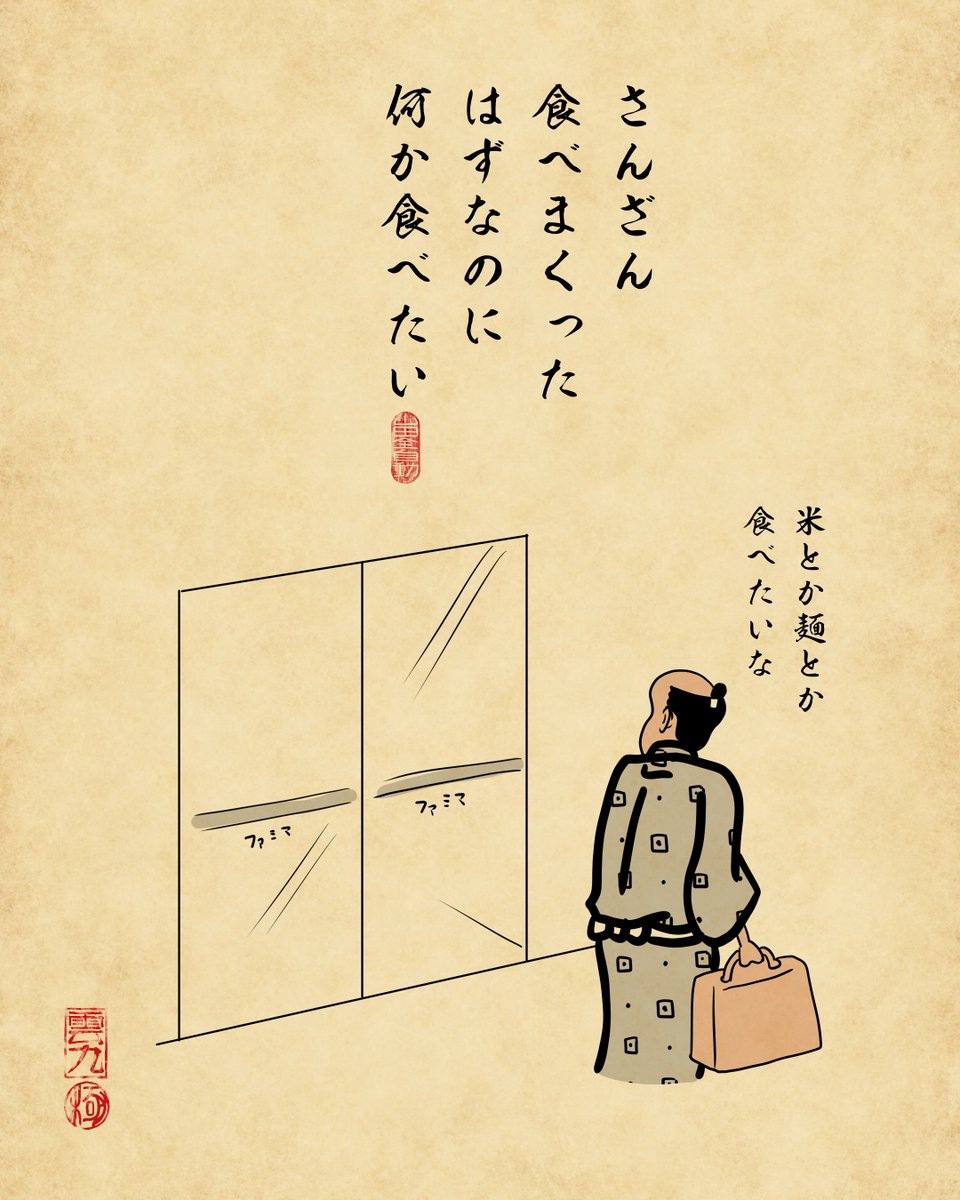 さんざん
食べまくった
はずなのに
何か食べたい
米とか麺とか
食べたいな
ファミマ
ファミマ